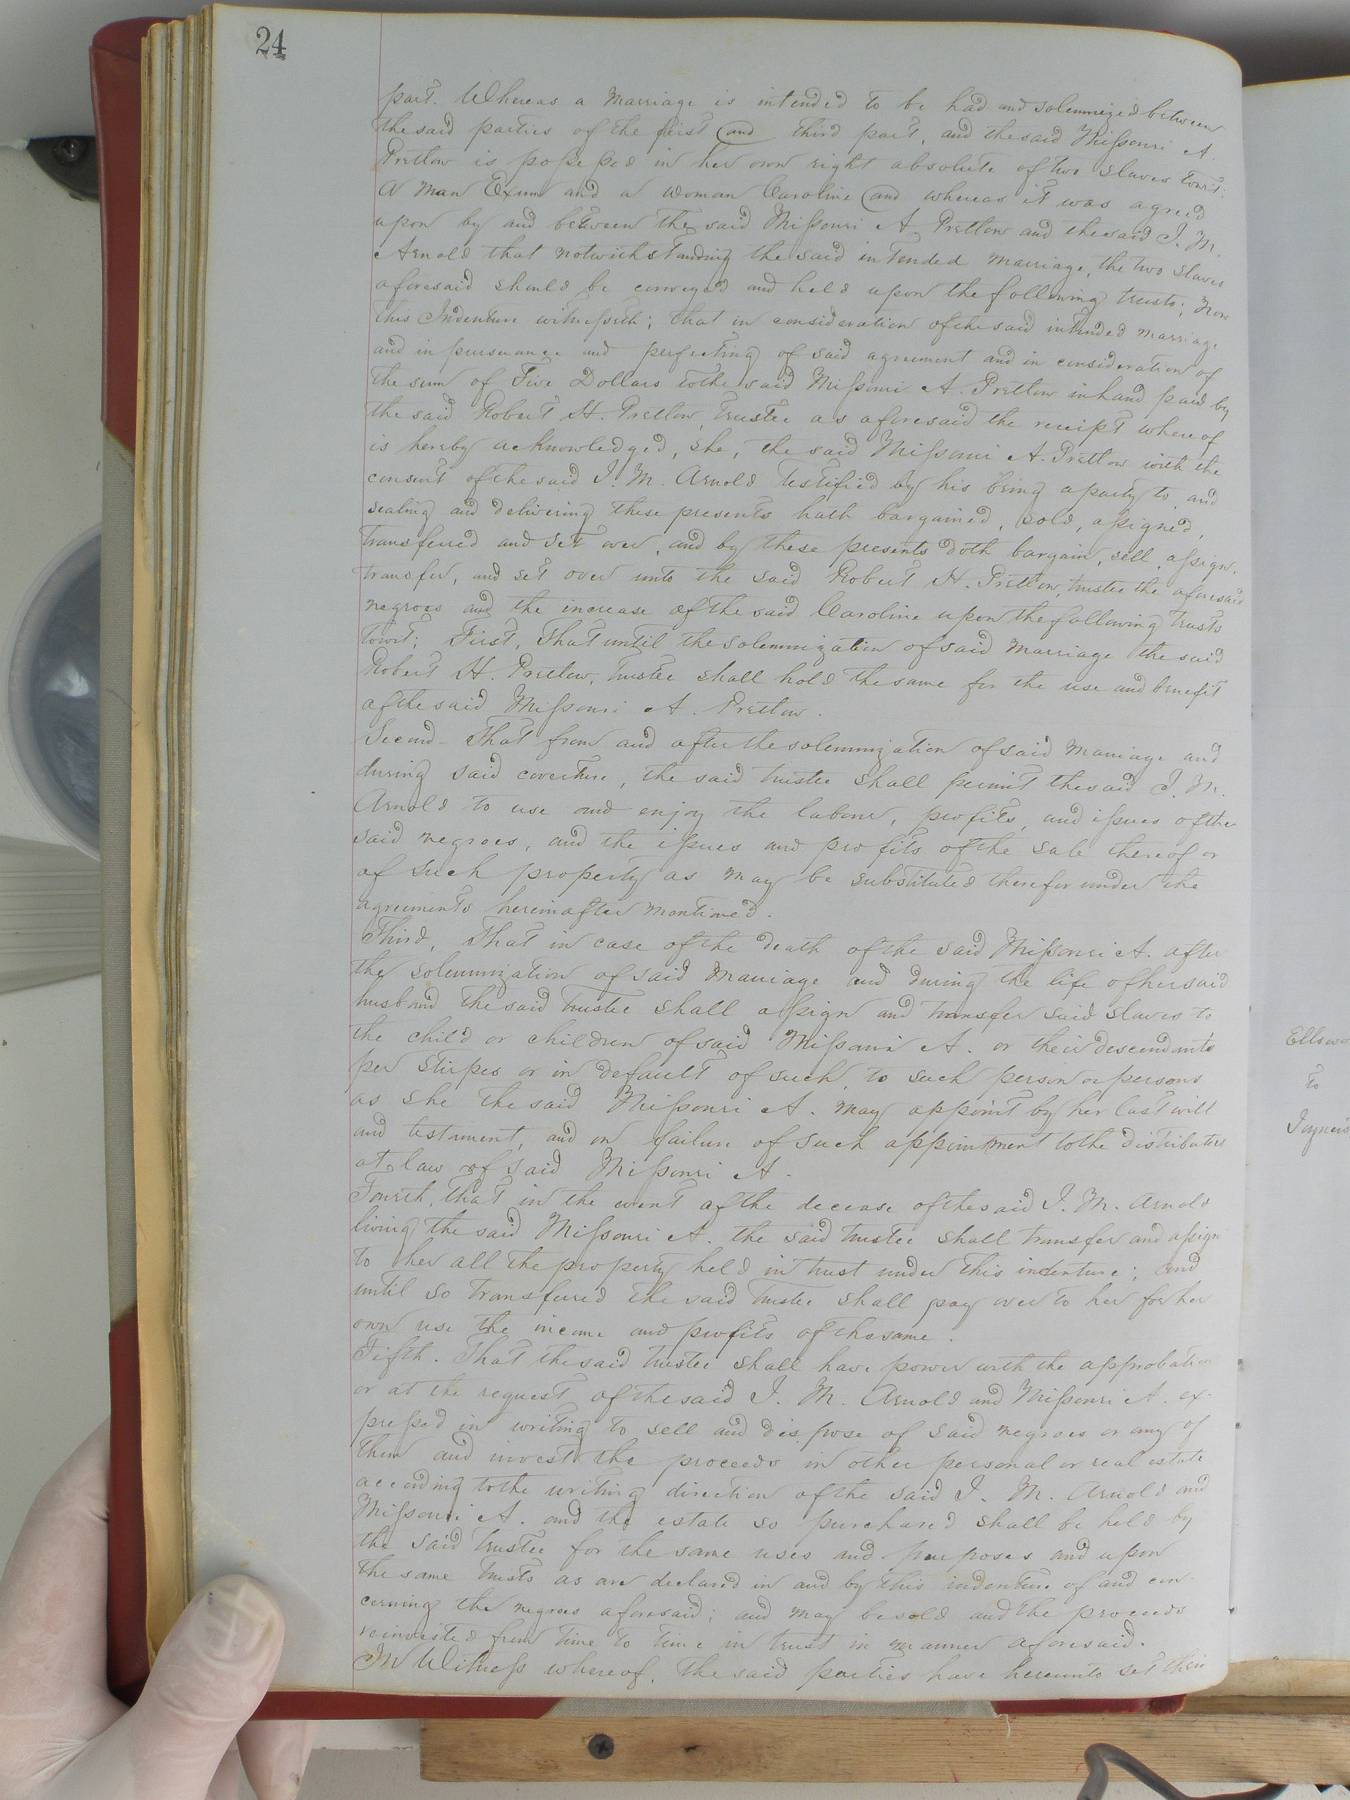 24
part. Whereas a Marriage is intended to be had and solemnized between
the said parties of the first and third part, and the said Missouri A.
Pretlow is possessed in her own right absolute of two slaves towit:
A Man Exum and a woman Caroline and whereas it was agreed
upon by and between the said Missouri A. Pretlow and the said J. M.
Arnold that notwithstanding the said intended marriage, the two slaves
aforesaid should be conveyed and held upon the following trusts; Now
this Indenture witnesseth; that in consideration of the said intended marriage
and in pursuance and perfecting of said agreement and in consideration of
the sum of Five Dollars to the said Missouri A. Pretlow in hand paid by
the said Robert H. Pretlow, trustee as aforesaid the receipt whereof
is hereby acknowledged, she, the said Missouri A. Pretlow with the
consent of the said J. M. Arnold testified by his being a party to, and
sealing and delivering these presents hath bargained, sold, assigned,
transferred and set over, and by these presents doth bargain, sell, assign,
transfer, and set over unto the said Robert H. Pretlow, trustee the aforesaid
negroes and the increase of the said Caroline upon the following trusts
towit; First, That until the solemnization of said marriage the said
Robert H. Pretlow, trustee shall hold the same for the use and benefit
of the said Missouri A. Pretlow.
Second - That from and after the solemnization of said Marriage and
during said coverture, the said trustee shall permit the said J. M.
Arnold to use and enjoy the labour, profits, and issues of the
said negroes, and the issues and profits of the sale thereof or
of such property as may be substituted therefor under the
agreements hereinafter mentioned.
Third, That in case of the death of the said Missouri A. after
the solemnization of said Marriage and during the life of her said
husband the said trustee shall assign and transfer said slaves to
the child or children of said Missouri A. or their descendants
per stirpes or in default of such, to such person or persons
as she the said Missouri A. may appoint by her last will
and testament, and on failure of such appointment to the distributees
at law of said Missouri A.
Fourth, that in the event of the decease of the said J. M. Arnold
living the said Missouri A. the said trustee shall transfer and assign
to her all the property held in trust under this indenture; and
until so transferred the said trustee shall pay over to her for her
own use the income and profits of the same.
Fifth. That the said trustee shall have power with the approbation
or at the request of the said J. M. Arnold and Missouri A. ex-
pressed in writing to sell and dispose of said negroes or any of
them and invest the proceeds in other personal or real estate
according to the writing direction of the said J. M. Arnold and
Missouri A. and the estate so purchased shall be held by
the said trustee for the same uses and purposes and upon
the same trusts as are declared in and by this indenture of and con-
cerning the negroes aforesaid; and may be sold and the proceeds
reinvested from time to time in trust in manner aforesaid.
In Witness whereof, the said parties have hereunto set their
to